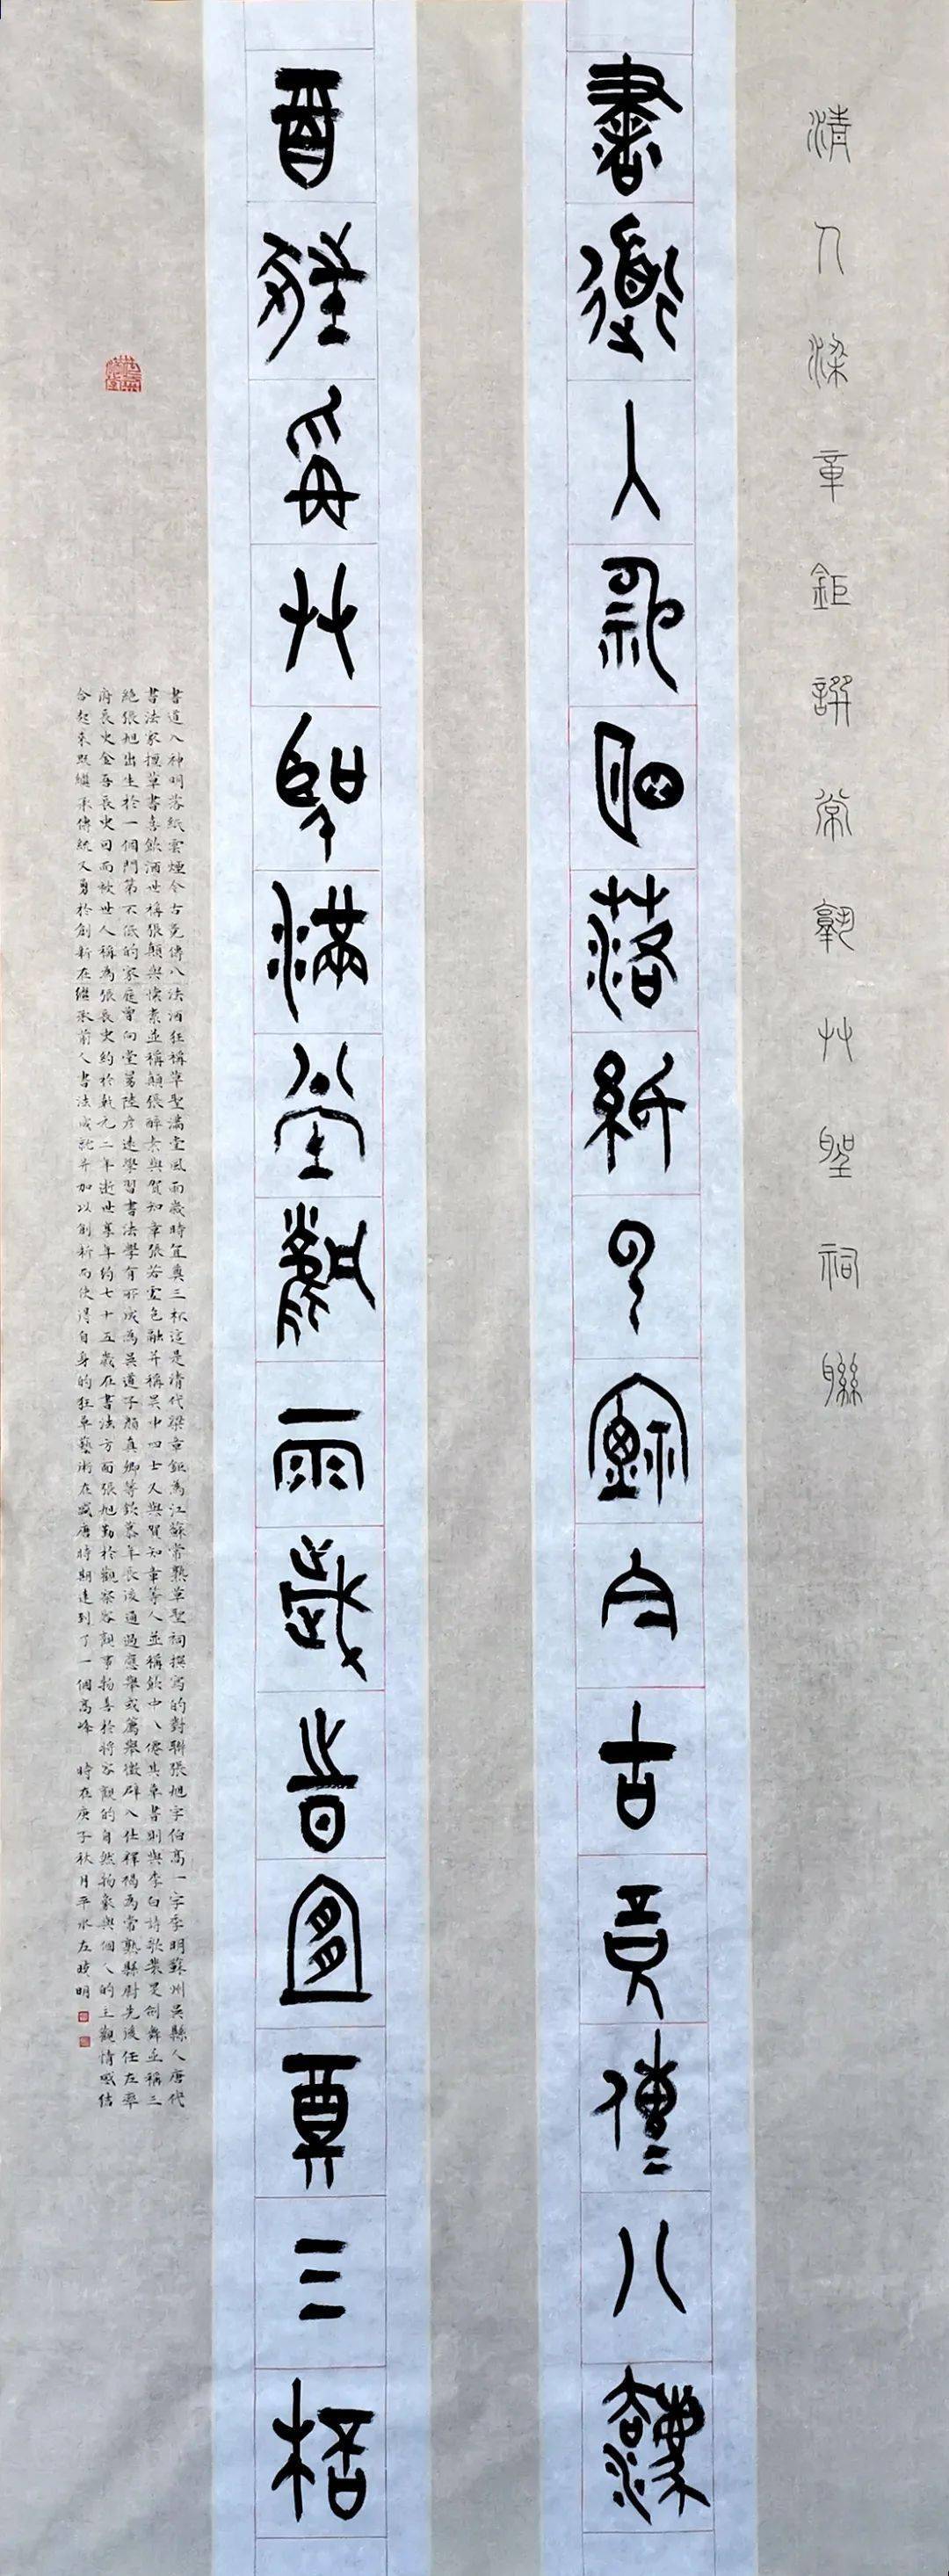 清人梁章鉅譔常孰艸聖祠聯
書道入神明落紙云煙今古竟傳八灋
酉狂爯艸聖滿堂風雨歲時宜奠三桮
書道入神明落紙雲煙今古竞傳八法酒狂稱草聖滿堂風雨歲時宜奠三杯這是清代梁章鉅為江蘇常熟草聖祠撰寫的對聯張旭字伯高一字季明蘇州吳縣人唐代
書法家擅草書喜飲酒世稱張顛與懷素並稱顛張醉素與賀知章張若虛包融并稱吳中四士又與賀知章等人並稱飲中八僊其草書則與李白詩歌裴旻劍舞並稱三
絕張旭出生於一個門第不低的家庭曾向堂舅陸彥遠學習書法學有所成為吳道子顏真卿等欽慕年長後通過應舉或薦舉徵辟入仕釋褐為常熟縣尉先後任左率
府長史金吾長史因而被世人稱為張長史約於乾元二年逝世享年約七十五歲在書法方面張旭勤於觀察客觀事物善於將客觀的自然物象與個人的主觀情感結
合起來既繼承傳統又勇於創新在繼承前人書法成就并加以創新而使得自身的狂草藝術在盛唐時期達到了一個高峰 時在庚子秋月平水左曉明